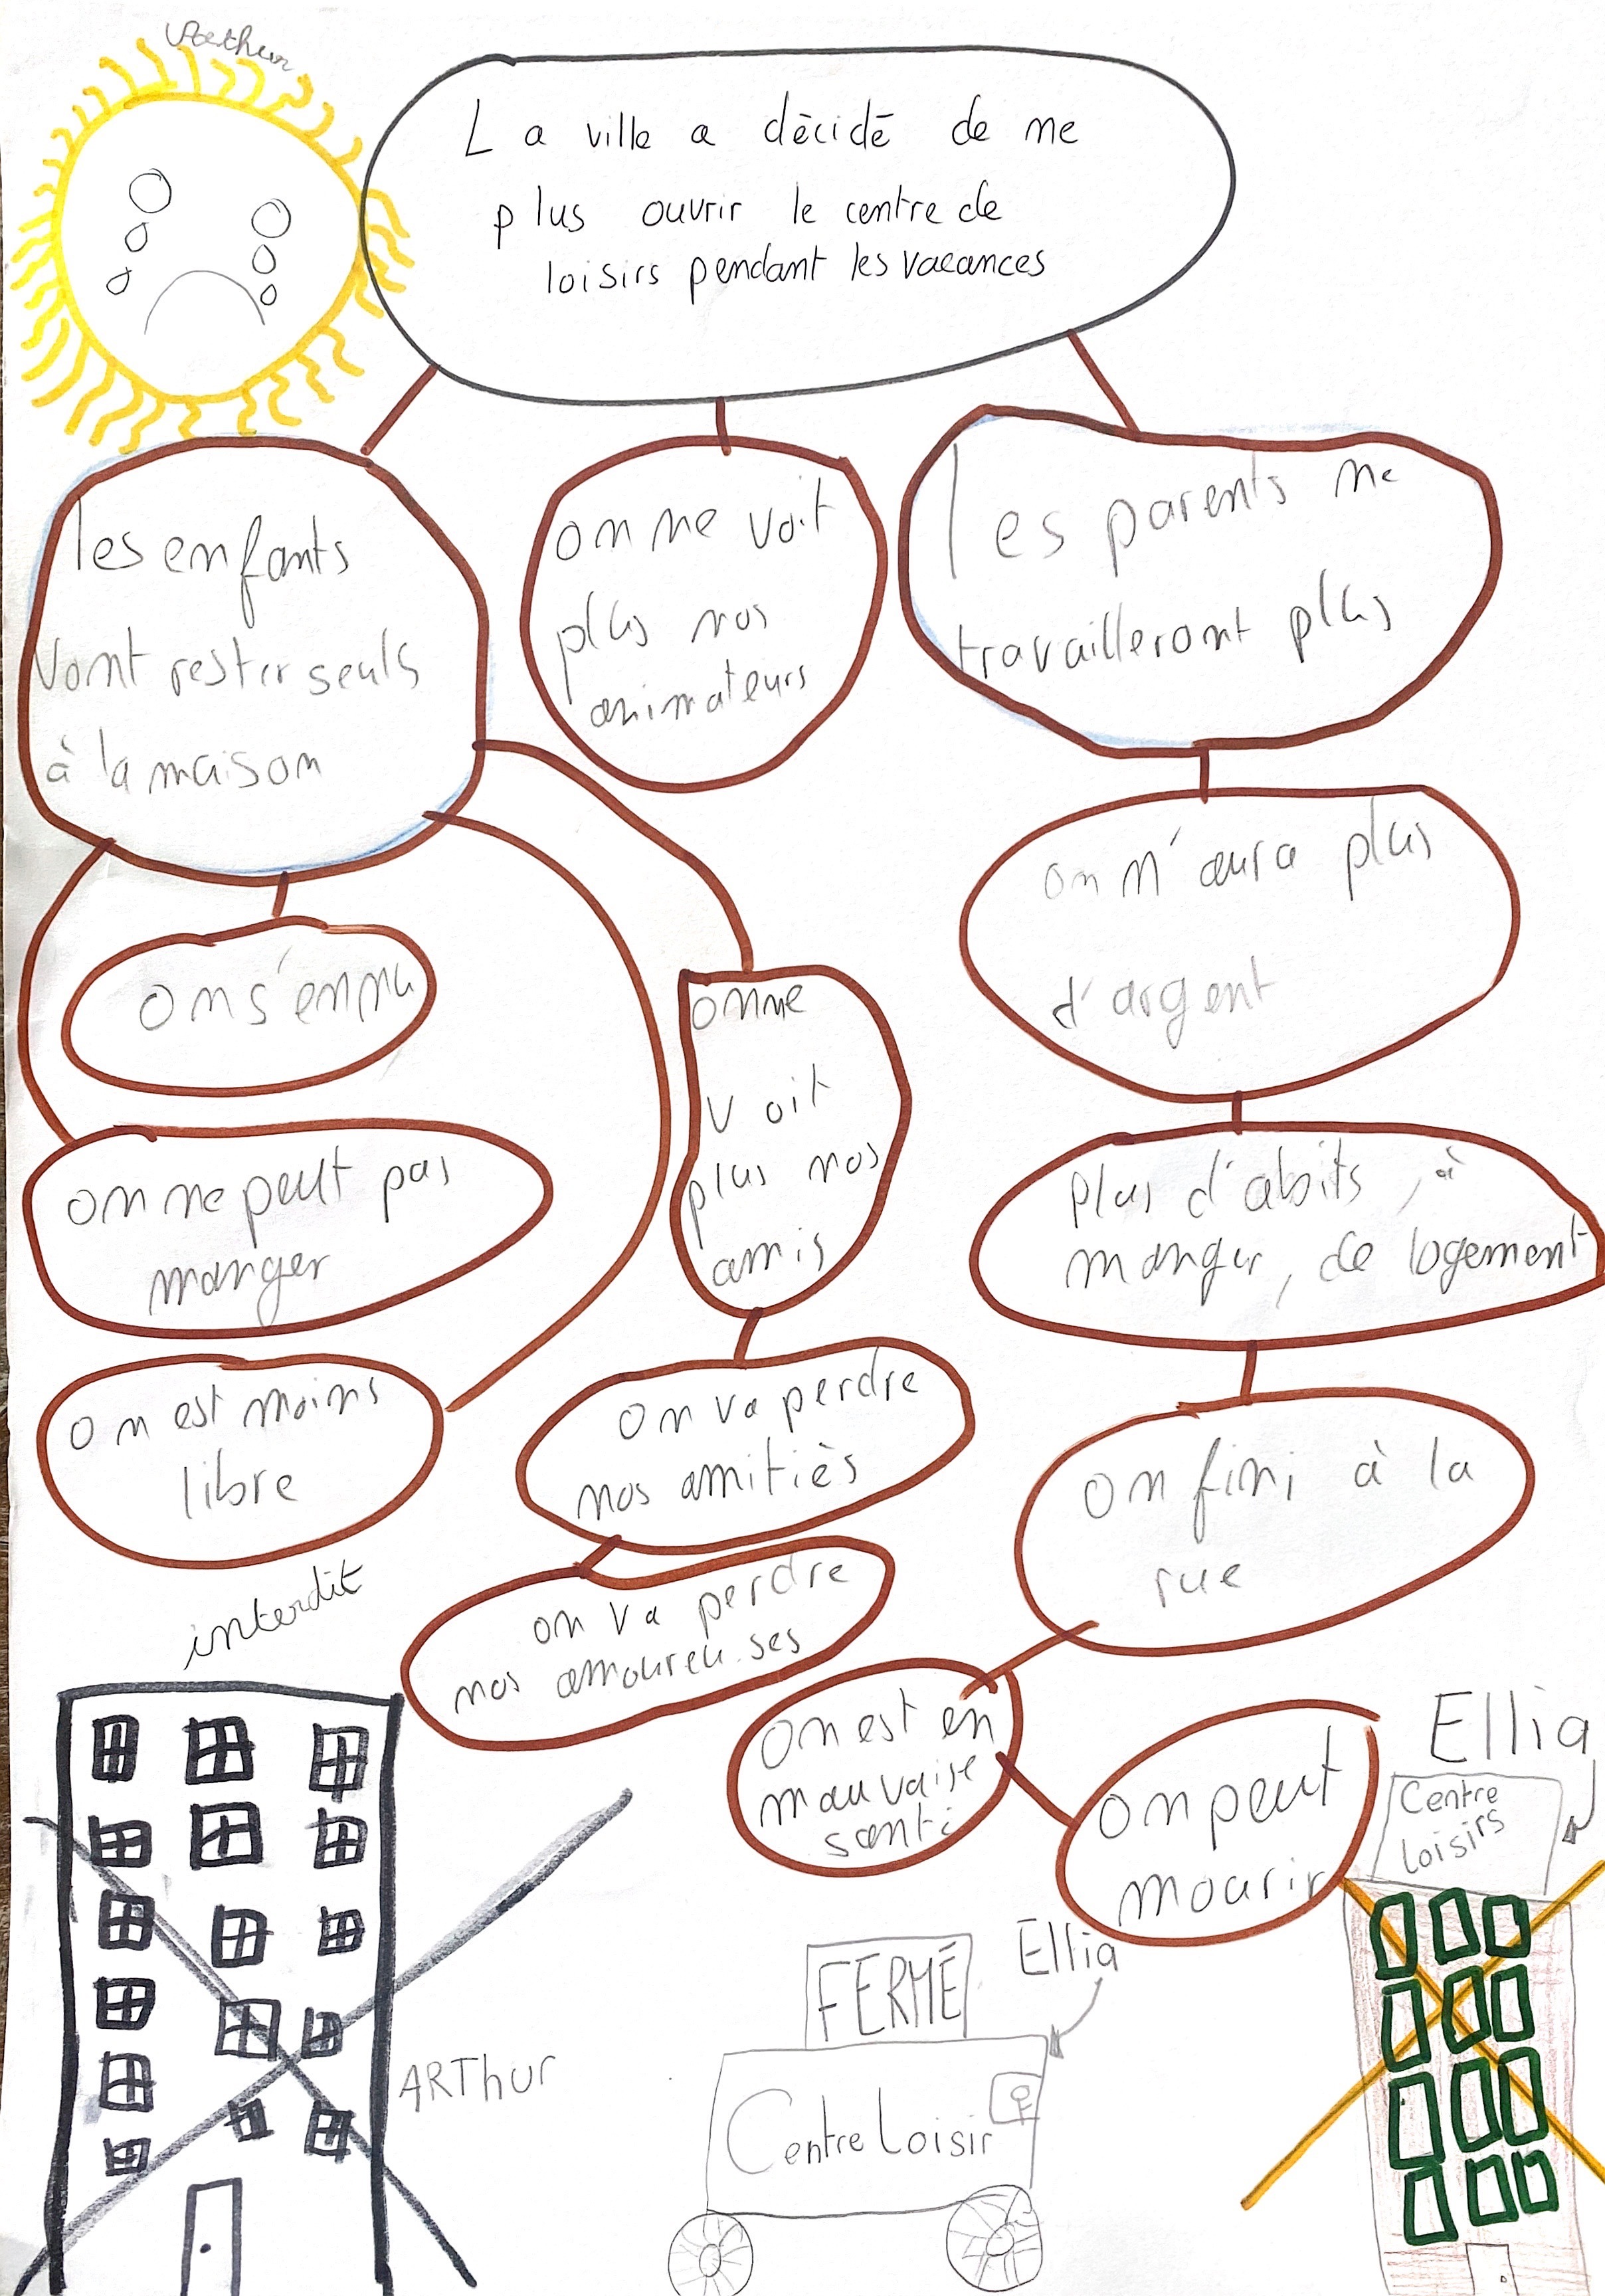 Arthur
La ville a décidé de ne
plus ouvrir le centre de
loisirs pendant les vacances
les enfants
vont rester seuls
à la maison
on ne voit
plus nos
animateurs
les parents ne
travailleront plus
on s'ennu
on ne peut pas
manger
on est moins
libre
on ne
voit
plus nos
amis
on va perdre
nos amitiès
on va perdre
nos amoureuses
on n'aura plus
d'argent
plus d'abits, à
manger, de logement
on fini à la
rue
on est en
mauvaise
santé
on peut
mourir
interdit
ARThur
FERMÉ
Ellia
Centre Loisir
Ellia
Centre
loisirs